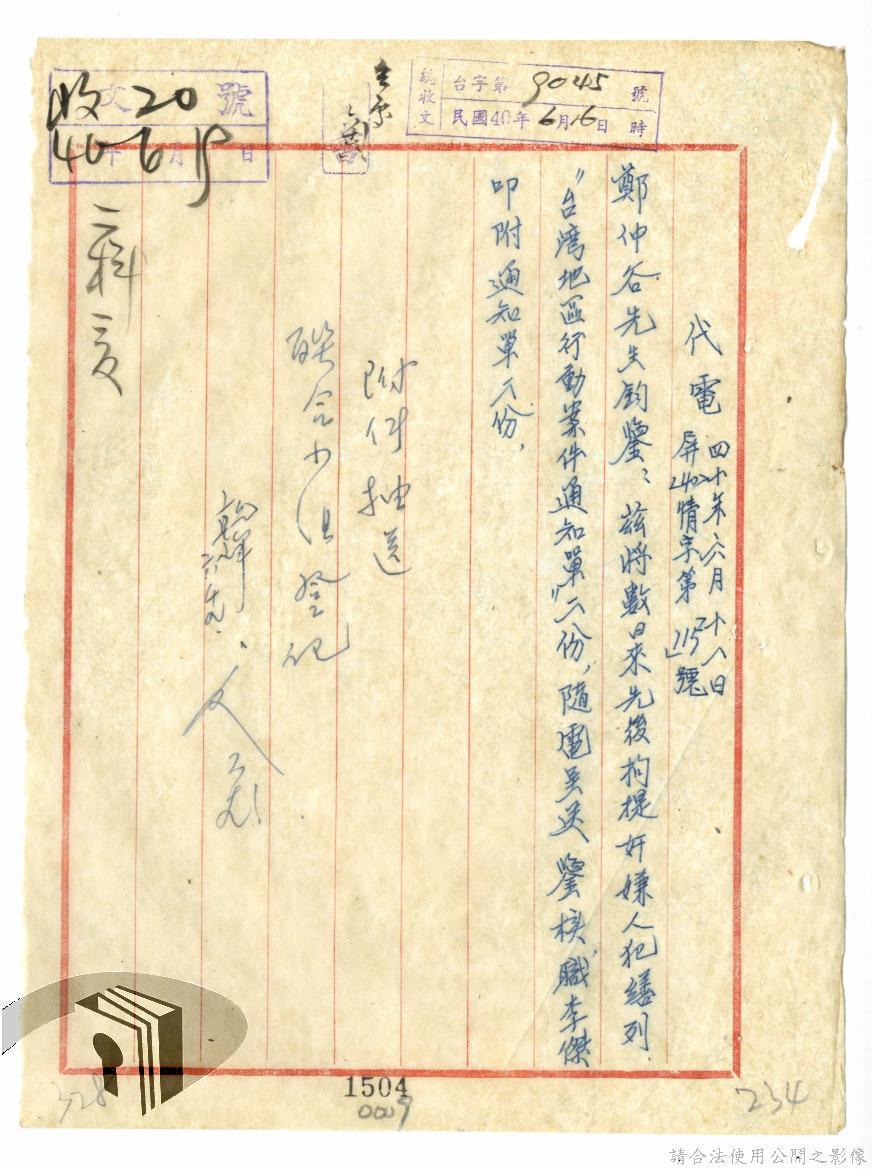 總收文 台字第9045號
民國40年6月16日 時
收文20號
40年6月19日
代電
四十年六月十八日
屏(40)情字第「115」號
鄭仲谷先生鈞鑒：茲將數日來先後拘提奸嫌人犯繕列
"台湾地區行動案件通知單"六份，隨電呈送 鑒核，職李傑
叩附通知單六份，
附件抽送
聯合小組登記
二科
1504
0009
328
234
請合法使用公開之影像